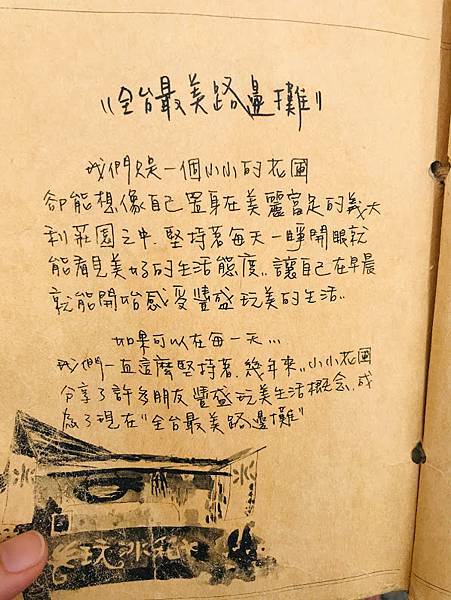 "全台最美路邊攤"
我們只是一個小小的花園
卻能想像自己置身在美麗富足的義大
利莊園之中.堅持著每天一睜開眼就
能看見美好的生活態度..讓自己在早晨
就能開始感受豐盛玩美的生活..
如果可以在每一天...
我們一直這麼堅持著,幾年來..小小花園
分享了許多朋友豐盛玩美生活概念,成
為了現在"全台最美路邊攤"
冰
冰
玩冰